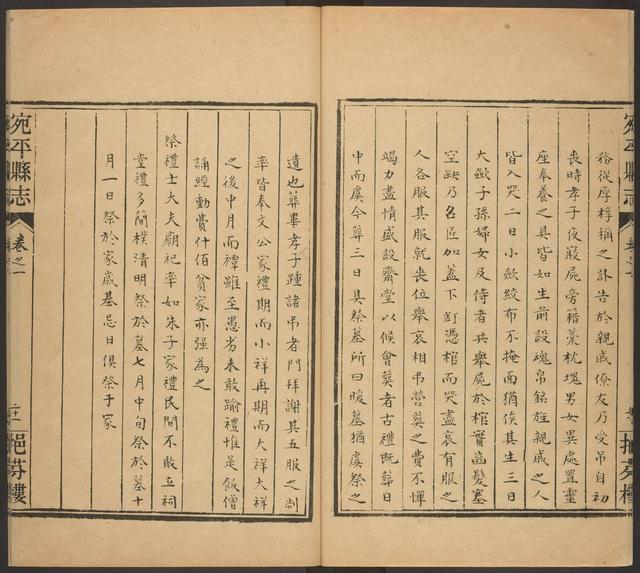 務從厚椁稱之訃告於親戚僚友乃受吊自初
喪時孝子夜寢屍旁籍藁枕塊男女異處置靈
座奉養之具皆如生前設魂帛銘旌親戚之人
皆入哭二日小歛絞布不掩面猶俟其生三日
大歛子孫婦女及侍者共舉屍於棺實齒髮塞
空缺乃名匠加蓋下釘憑棺而哭盡哀有服之
人各服其服就喪位舉哀相吊營葬之費不憚
竭力盡情盛設齋堂以候會葬者古禮既葬日
中而虞今葬三日具祭墓所曰暖墓猶虞祭之
遺也葬畢孝子踵諸吊者門拜謝其五服之制
率皆奉文公家禮期而小祥再期而大祥大祥
之後中月而禫雖至愚劣未敢踰禮惟是飯僧
誦經動費什佰貧家亦强為之
祭禮士大夫廟祀率如朱子家禮民間不敢立祠
堂禮多簡樸清明祭於墓七月中旬祭於墓十
月一日祭於家歲墓忌日俱祭于家
宛平縣志
卷之一
挹芬樓